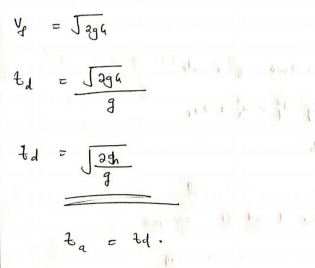 Vf = √2gh
td = √2gh / g
td = √2gh / g
ta = td.